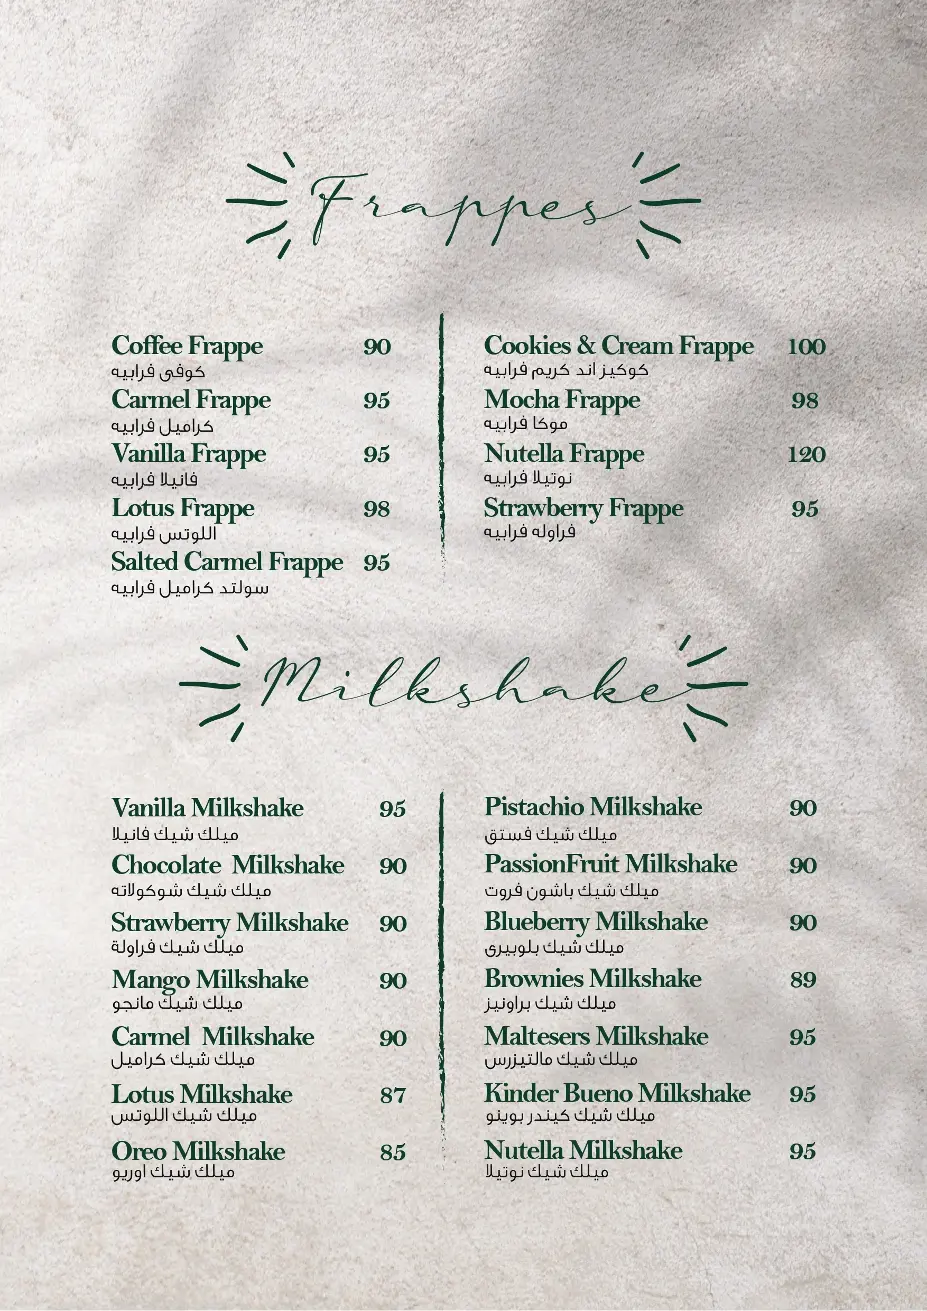 Frappes
Coffee Frappe 90
كوفى فرابيه
Carmel Frappe 95
كراميل فرابيه
Vanilla Frappe 95
فانيلا فرابيه
Lotus Frappe 98
اللوتس فرابيه
Salted Carmel Frappe 95
سولتد كراميل فرابيه
Cookies & Cream Frappe 100
كوكيز اند كريم فرابيه
Mocha Frappe 98
موكا فرابيه
Nutella Frappe 120
نوتيلا فرابيه
Strawberry Frappe 95
فراوله فرابيه
Milkshake
Vanilla Milkshake 95
ميلك شيك فانيلا
Chocolate Milkshake 90
ميلك شيك شوكولاته
Strawberry Milkshake 90
ميلك شيك فراولة
Mango Milkshake 90
ميلك شيك مانجو
Carmel Milkshake 90
ميلك شيك كراميل
Lotus Milkshake 87
ميلك شيك اللوتس
Oreo Milkshake 85
ميلك شيك اوريو
Pistachio Milkshake 90
ميلك شيك فستق
PassionFruit Milkshake 90
ميلك شيك باشون فروت
Blueberry Milkshake 90
ميلك شيك بلوبيرى
Brownies Milkshake 89
ميلك شيك براونيز
Maltesers Milkshake 95
ميلك شيك مالتيزرس
Kinder Bueno Milkshake 95
ميلك شيك كيندر بوينو
Nutella Milkshake 95
ميلك شيك نوتيلا